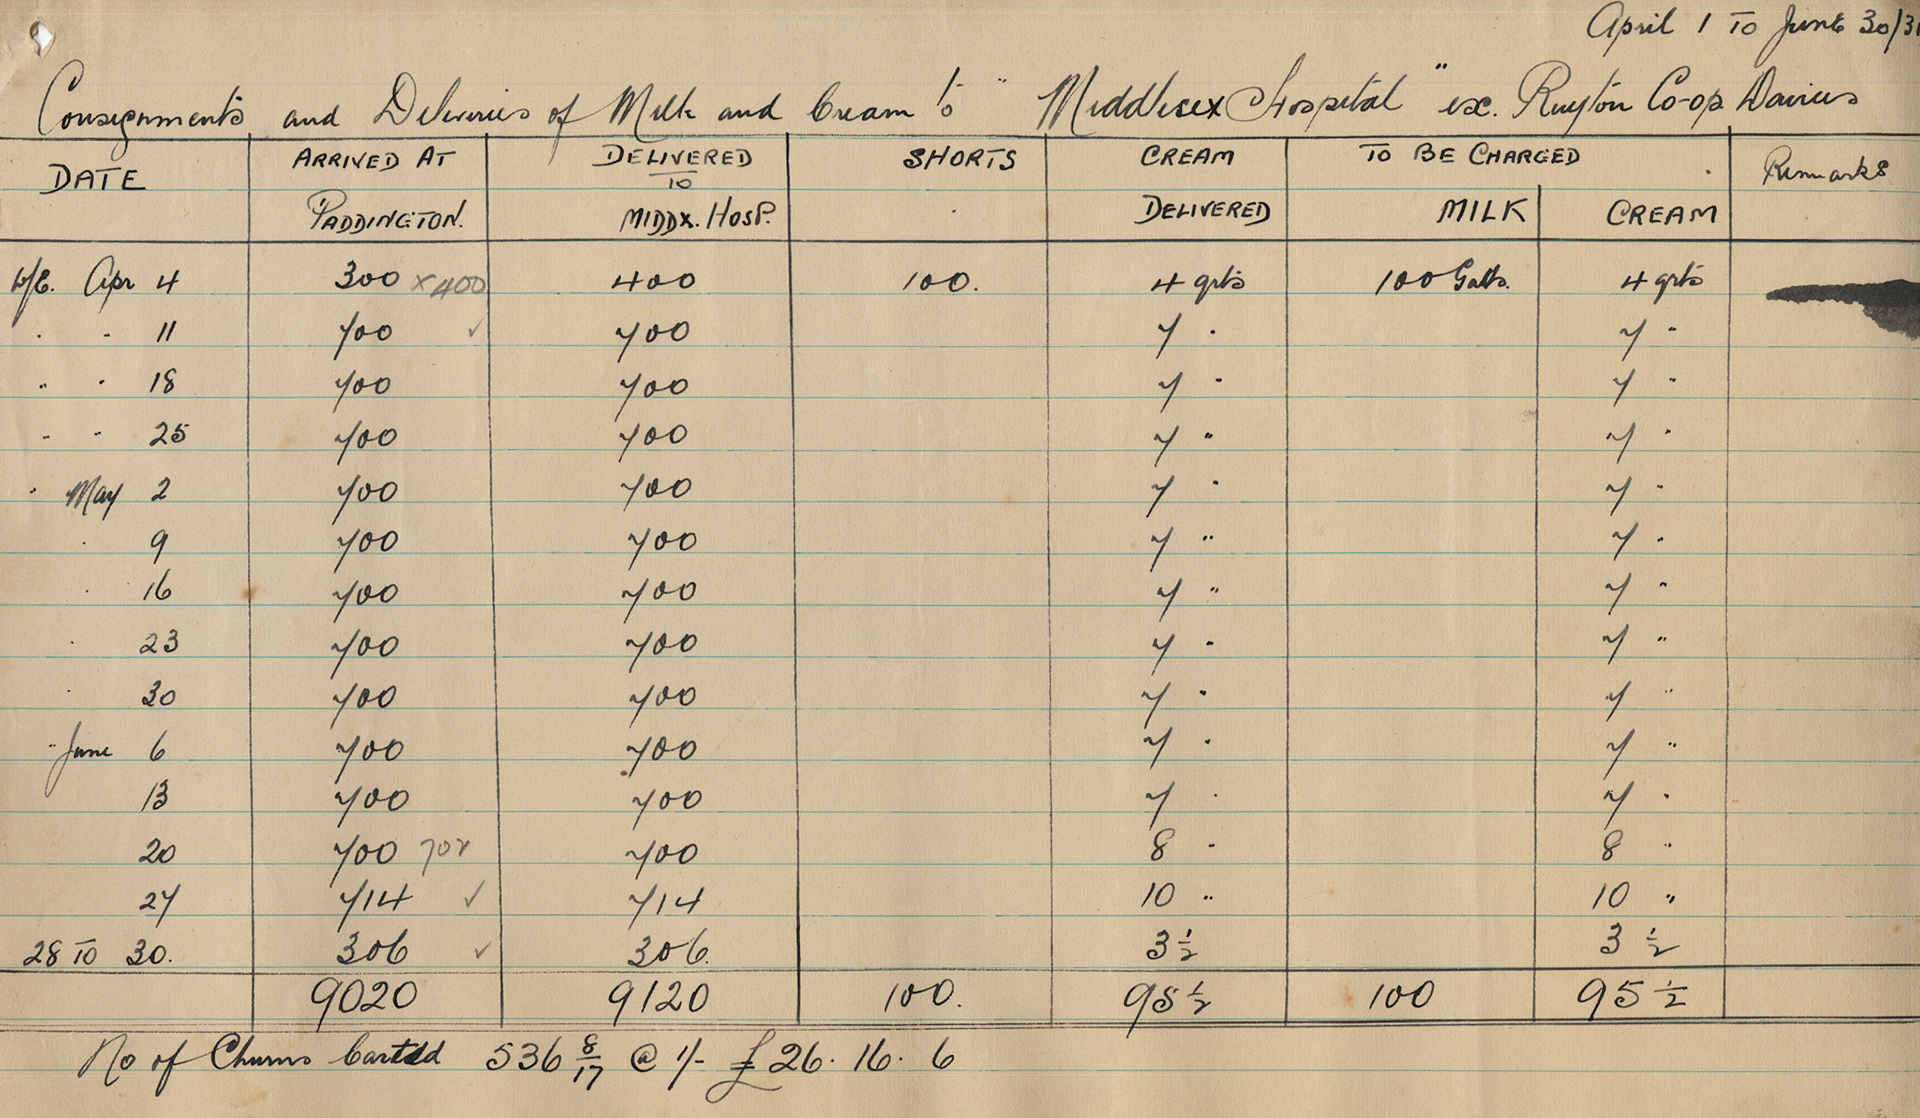 April 1 To June 30/31
Consignments and Deliveries of Milk and Cream to "Middlesex Hospital" ex. Ruyton Co-op Dairies
DATE ARRIVED AT PADDINGTON. DELIVERED TO MIDDX. HOSP. SHORTS CREAM DELIVERED TO BE CHARGED MILK CREAM Remarks
W/E. Apr 4 300 x400 400 100. 4 qrts 100 Galls. 4 qrts
" " 11 700 ✓ 700 7 " 7 "
" " 18 700 700 7 " 7 "
" " 25 700 700 7 " 7 "
" May 2 700 700 7 " 7 "
" 9 700 700 7 " 7 "
" 16 700 700 7 " 7 "
" 23 700 700 7 " 7 "
" 30 700 700 7 " 7 "
" June 6 700 700 7 " 7 "
13 700 700 7 " 7 "
20 700 702 700 8 " 8 "
27 714 ✓ 714 10 " 10 "
28 TO 30. 306 ✓ 306. 3 1/2 3 1/2
9020 9120 100. 95 1/2 100 95 1/2
No of Churns Carted 536 8/17 @ 1/- £26. 16. 6